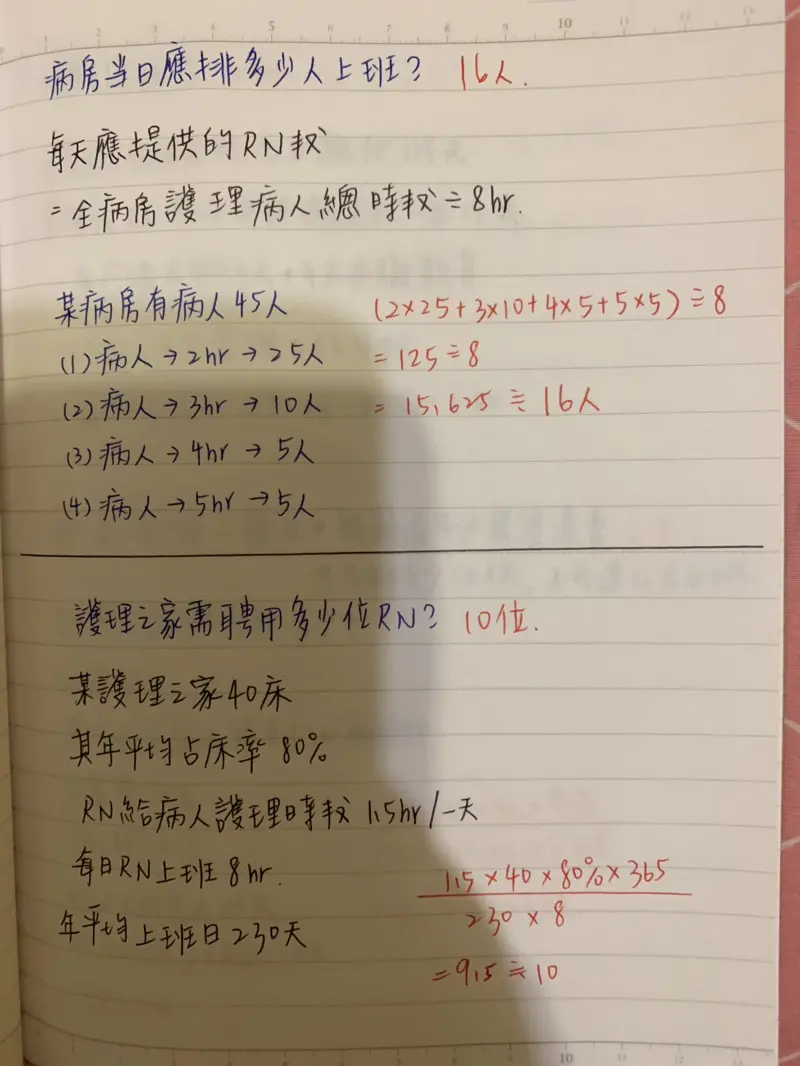 病房当日應排多少人上班? 16人.
每天應提供的RN數
=全病房護理病人總時數÷8hr.
某病房有病人45人 (2×25+3×10+4×5+5×5)÷8
(1)病人→2hr→25人 =125÷8
(2)病人→3hr→10人 =15.625≒16人
(3)病人→4hr→5人
(4)病人→5hr→5人
護理之家需聘用多少位RN? 10位.
某護理之家40床
其年平均占床率80%
RN給病人護理時數1.5hr/一天
每日RN上班8hr.
1.5×40×80%×365
230×8
年平均上班日230天
=9.5≒10